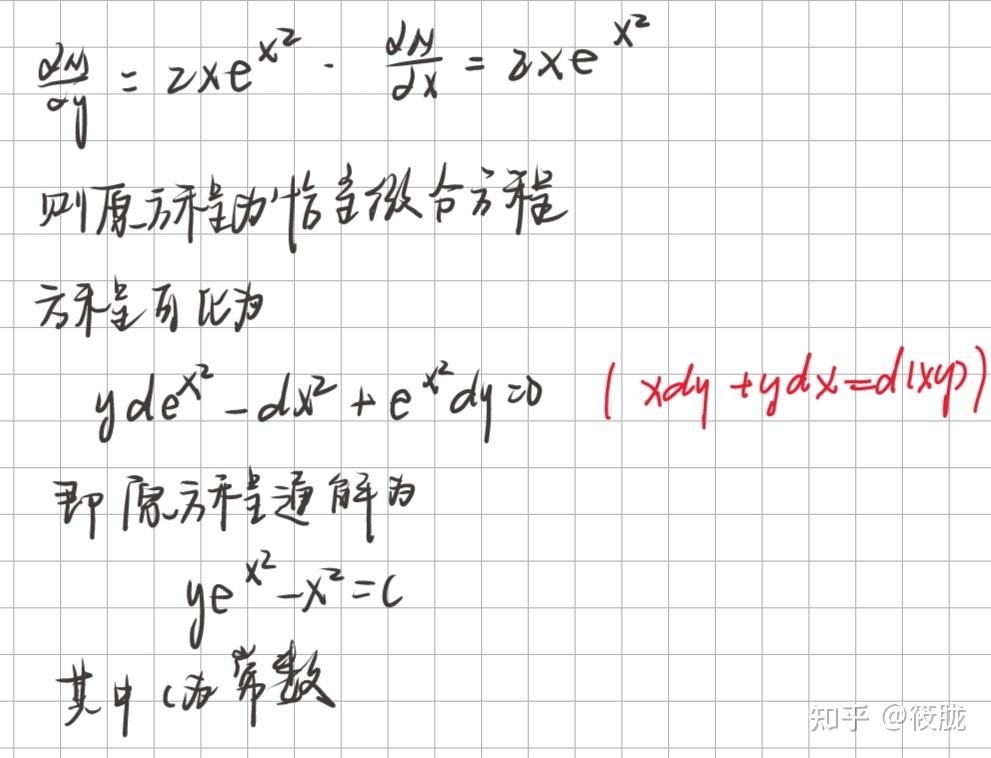 ∂M/∂y = 2xe^{x^2} . ∂N/∂x = 2xe^{x^2}
则原方程为恰当微分方程
方程可化为
yde^{x^2} - dx^2 + e^{x^2}dy = 0 (xdy + ydx = d(xy))
即原方程通解为
ye^{x^2} - x^2 = C
其中C为常数
知乎 @筱胧